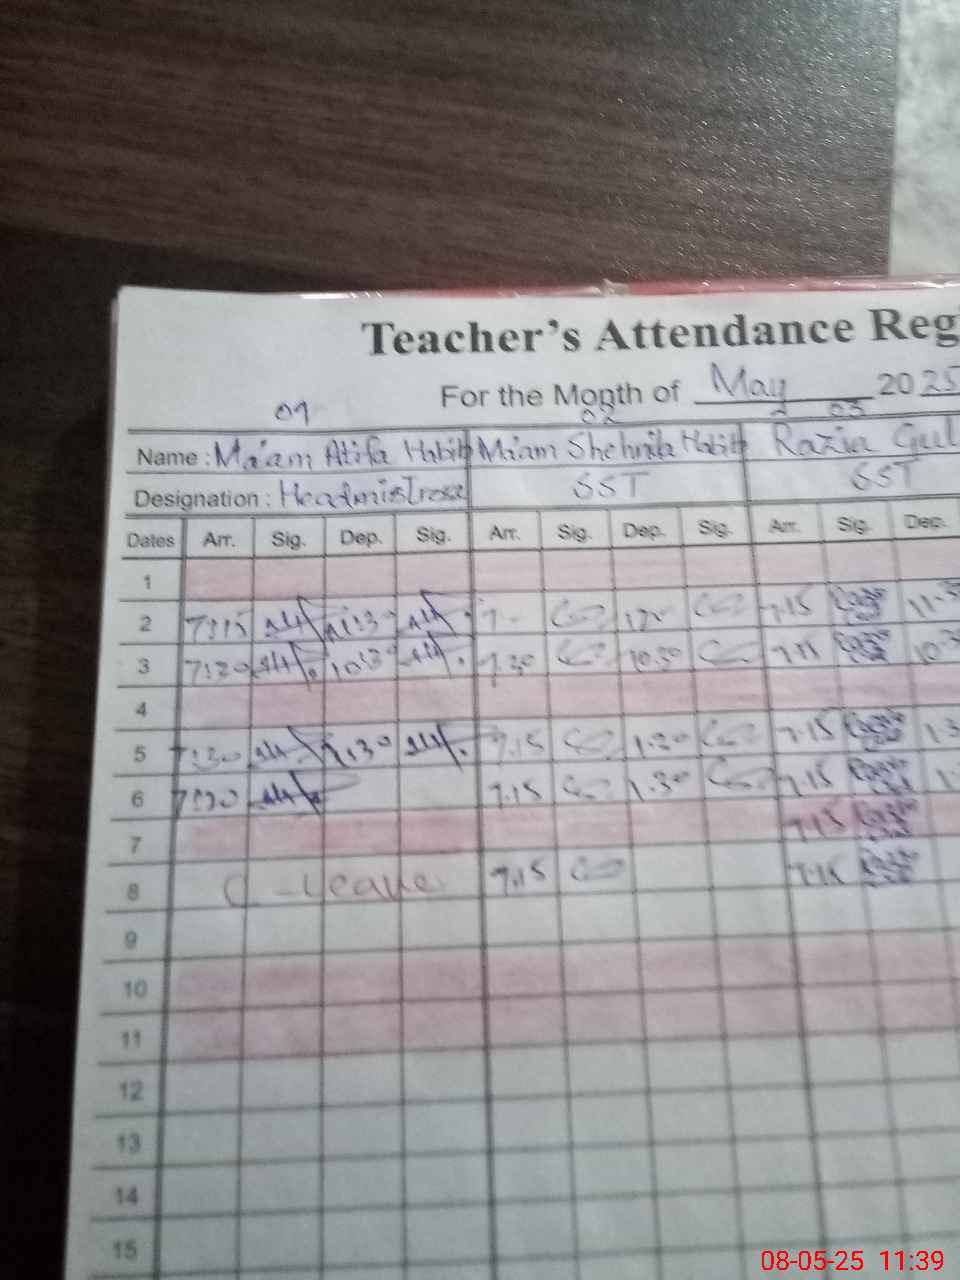 Teacher's Attendance Reg
For the Month of May 2025
01 02 03
Name : Ma'am Atifa Habib Ma'am Shehnila Habib Razia Gul
Designation : Headmistress SST SST
Dates Arr. Sig. Dep. Sig. Arr. Sig. Dep. Sig. Arr. Sig. Dep.
1
2 7:15 11:30 7.15 11.3
3 7:20 10:30 7.30 10.30 7.15 10.3
4
5 7:30 1:30 7.15 1.30 7.15 1.3
6 7:30 7.15 1.30 7.15 1.
7 7.15
8 C-Leave 7.15 7.15
9
10
11
12
13
14
15
08-05-25 11:39